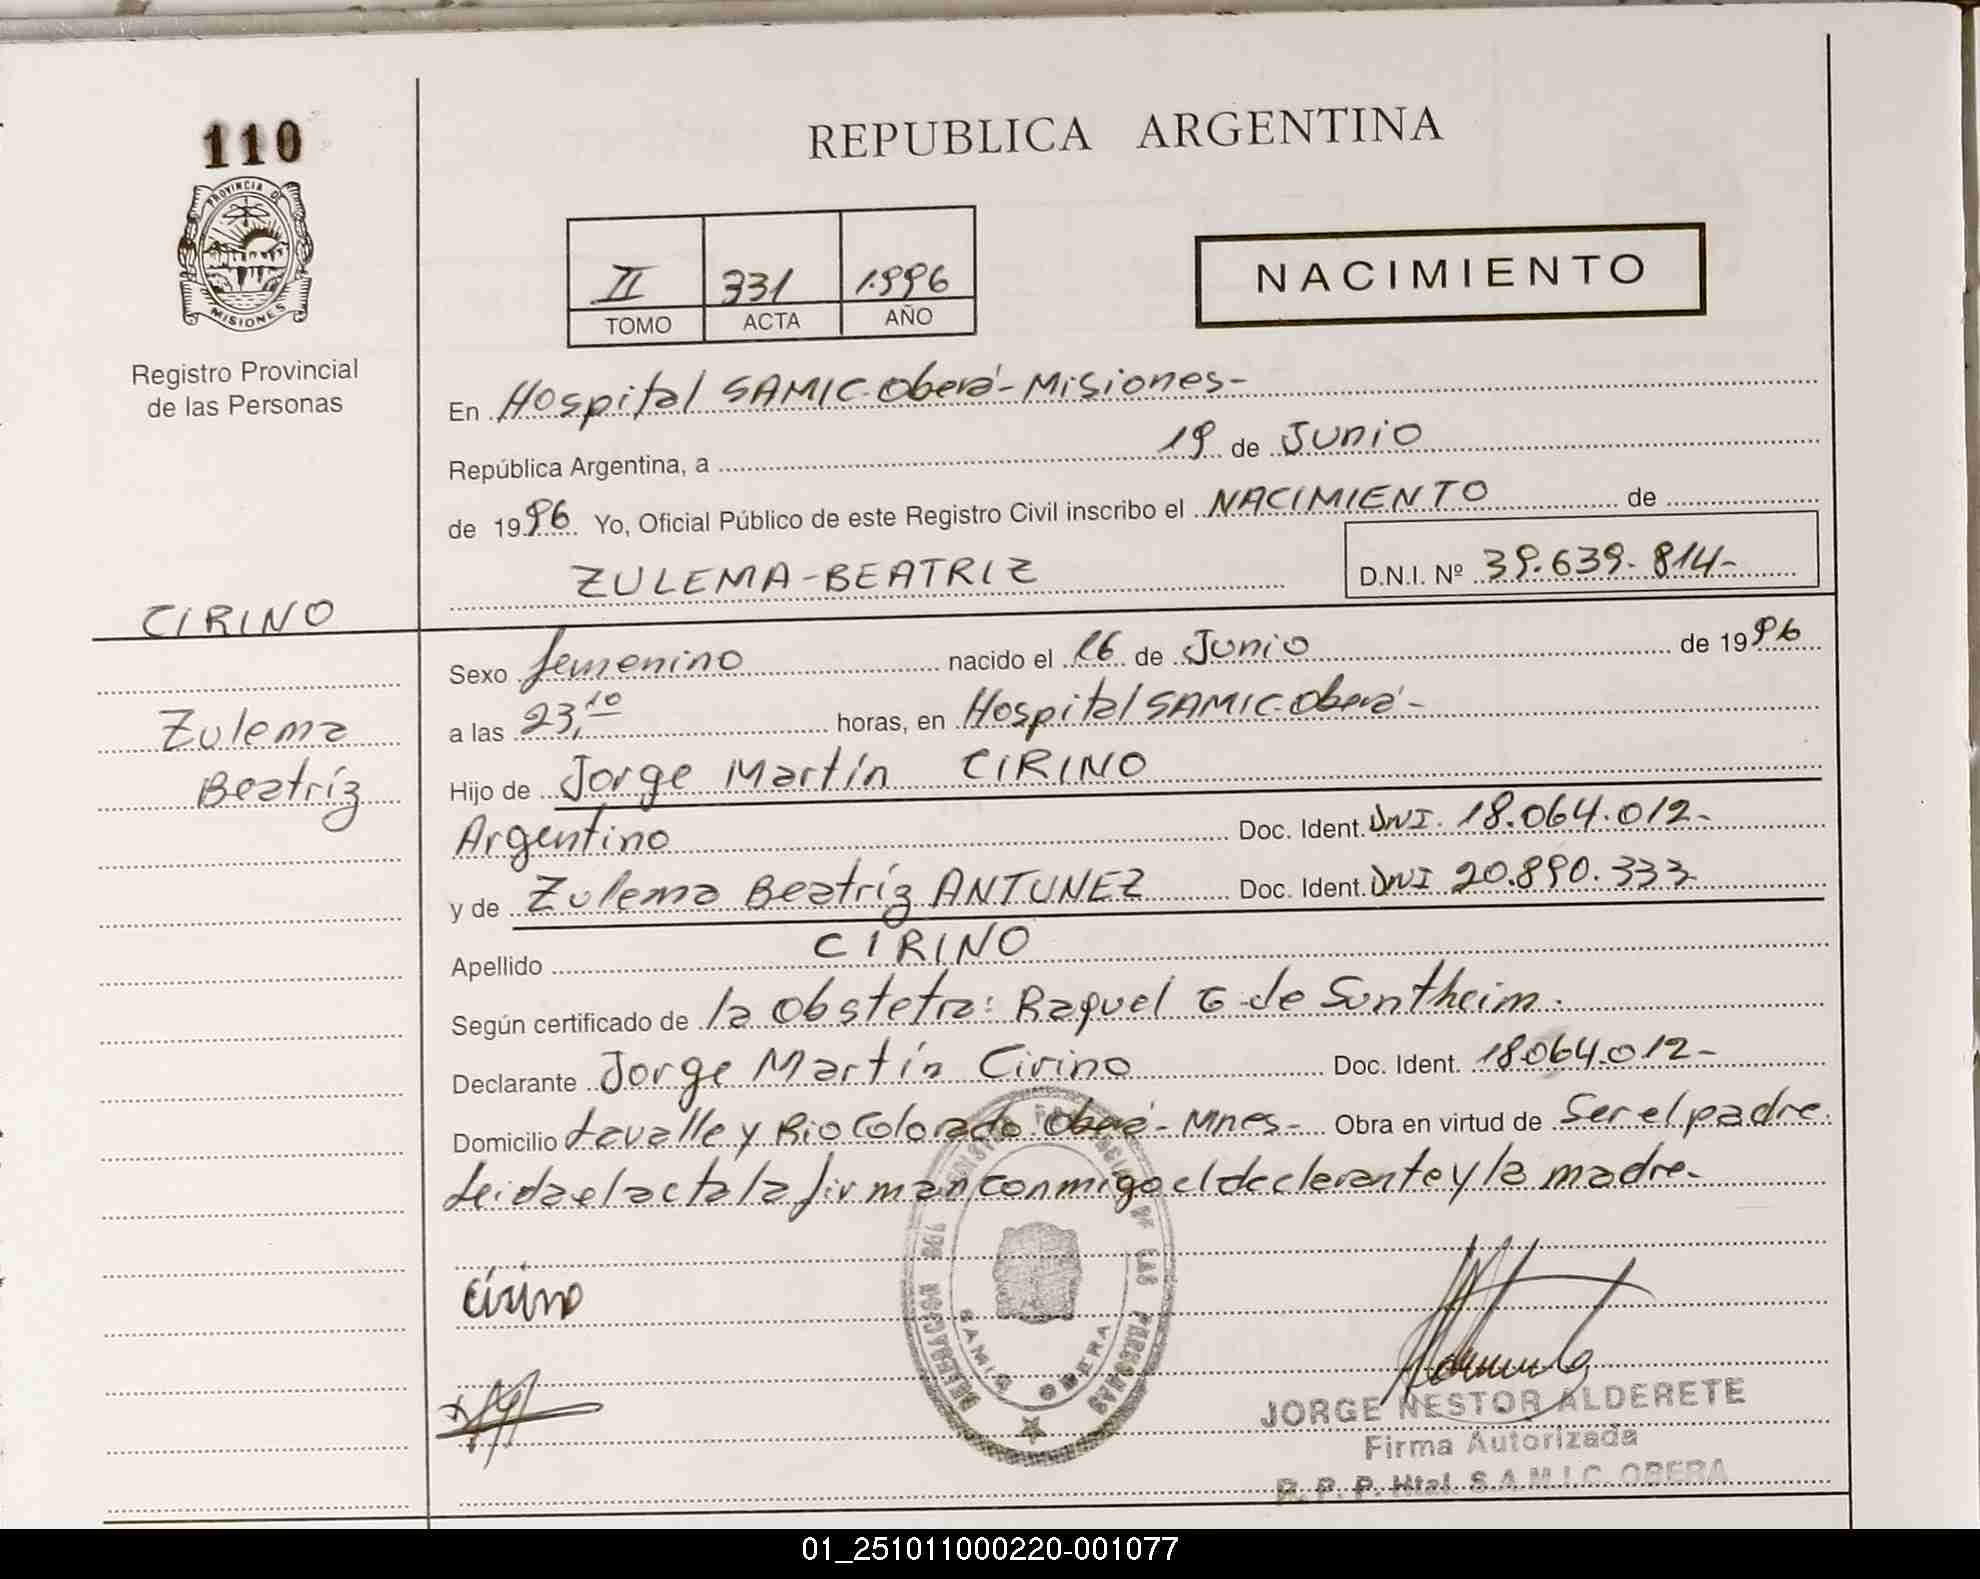 110
PROVINCIA DE
MISIONES
Registro Provincial
de las Personas
CIRINO
Zulema
Beatríz
REPUBLICA ARGENTINA
II 331 1.996
TOMO ACTA AÑO
NACIMIENTO
En Hospital SAMIC-Oberá-Misiones-
República Argentina, a 19 de Junio
de 1996 Yo, Oficial Público de este Registro Civil inscribo el NACIMIENTO de
ZULEMA-BEATRIZ D.N.I. Nº 39.639.814-
Sexo femenino nacido el 16 de Junio de 1996
a las 23,10 horas, en Hospital SAMIC-Oberá-
Hijo de Jorge Martín CIRINO
Argentino Doc. Ident. DNI. 18.064.012-
y de Zulema Beatríz ANTUNEZ Doc. Ident. DNI 20.890.333-
Apellido CIRINO
Según certificado de la Obstetra: Raquel G de Suntheim.
Declarante Jorge Martín Cirino Doc. Ident. 18.064.012-
Domicilio Lavalle y Rio Colorado Oberá-Mnes- Obra en virtud de Ser el padre.
Leida el acta la firman conmigo el declarante y la madre-
Cirino
SAMIC OBERA
JORGE NESTOR ALDERETE
Firma Autorizada
R. P. P. Htal. S.A.M.I.C. OBERA
01_251011000220-001077